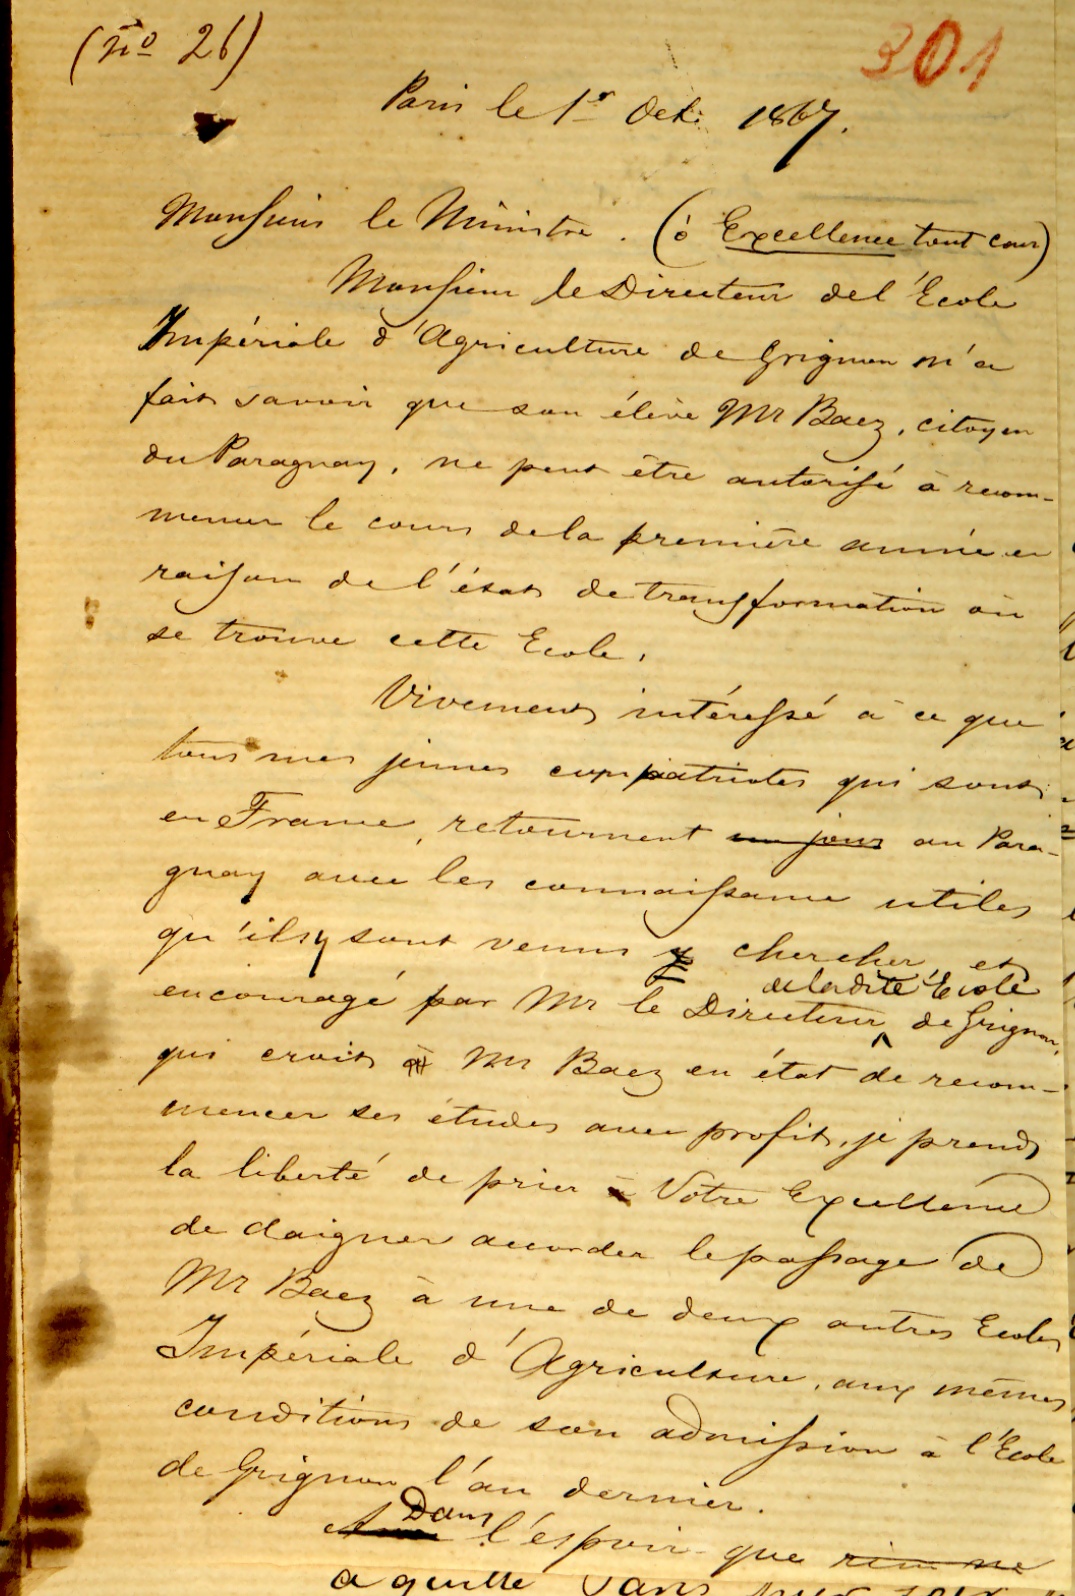 (nº 26)
301
Paris le 1r Oct. 1867.
Monsieur le Ministre. (ó Excellence tout cour)
Monsieur le Directeur de l'Ecole
Impériale d'Agriculture de Grignon m'a
fait savoir que son élève Mr Baez, citoyen
du Paraguay, ne peut être autorisé à recom-
mencer le cours de la première année en
raison de l'état de transformation où
se trouve cette Ecole.
Vivement intéressé à ce que
tous mes jeunes compatriotes qui sont
en France, retournent un jour au Para-
guay avec les connaissance utiles
qu'ils y sont venus y chercher, et
de ladite Ecole
encouragé par Mr le Directeur de Grignon,
qui croit à Mr Baez en état de recom-
mencer ses études avec profit, je prends
la liberté de prier à Votre Excellence
de daigner accorder le passage de
Mr Baez à une de deux autres Ecoles
Impériale d'Agriculture, aux mêmes
conditions de son admission à l'Ecole
de Grignon l'an dernier.
Dans l'espoir que rien ne